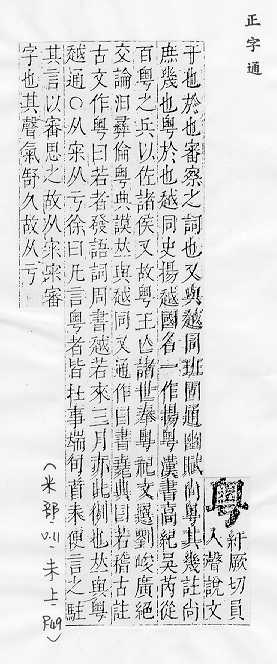 正字通
粵
紆厥切員
入聲說文
亏也於也審察之詞也又與越同班固通幽賦尙粵其幾註尚
庶幾也粵於也越同史揚越國名一作揚粵漢書高紀吳芮從
百粵之兵以佐諸侯又故粵王亾諸世奉粵祀文選劉峻廣絕
交論汨彝倫粵典謨𠀤與越同又通作曰書堯典曰若稽古註
古文作粵曰若者發語詞周書越若來三月亦此例也𠀤與粵
越通○从宷从亏徐曰凡言粵者皆在事端句首未便言之駐
其言以審思之故从宷宷審
字也其聲氣舒久故从亏
(米部 0.11 未上 P49)